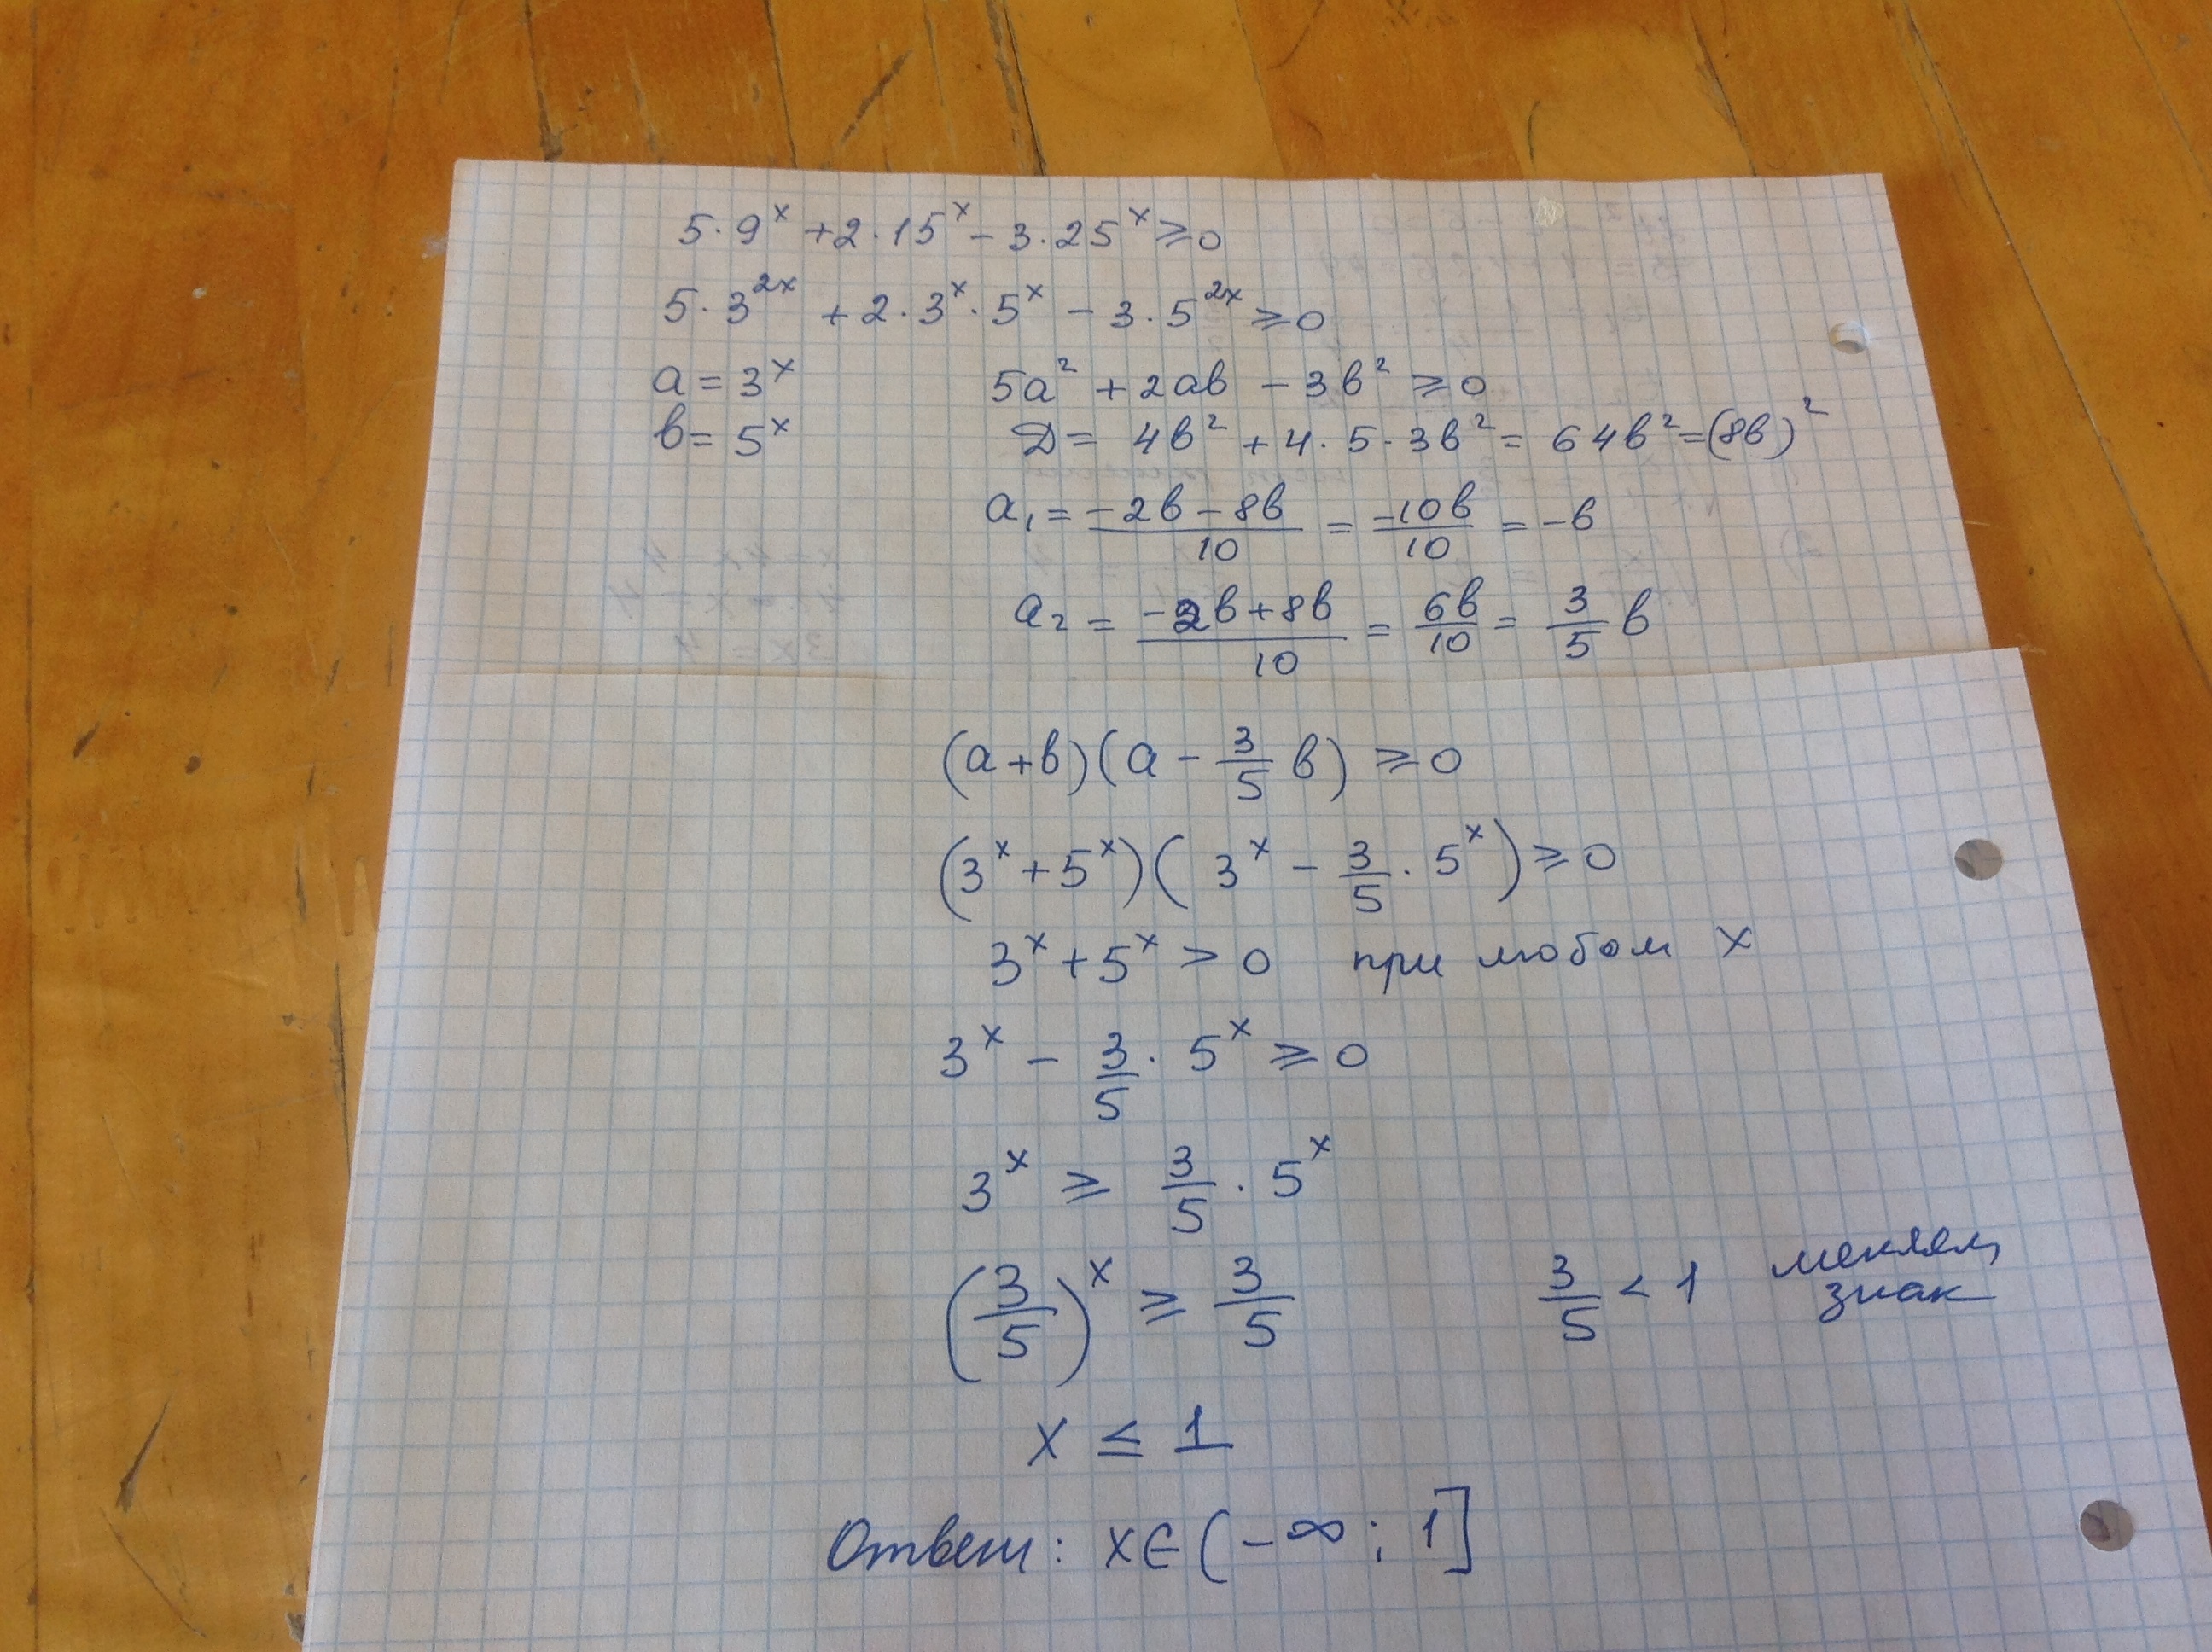 5·9^x + 2·15^x − 3·25^x ⩾ 0
5·3^{2x} + 2·3^x·5^x − 3·5^{2x} ⩾ 0
a = 3^x    5a² + 2ab − 3b² ⩾ 0
b = 5^x    D = 4b² + 4·5·3b² = 64b² = (8b)²
a₁ = \frac{−2b − 8b}{10} = \frac{−10b}{10} = −b
a₂ = \frac{−2b + 8b}{10} = \frac{6b}{10} = \frac{3}{5} b
(a + b)(a − \frac{3}{5} b) ⩾ 0
(3^x + 5^x)(3^x − \frac{3}{5}·5^x) ⩾ 0
3^x + 5^x > 0 при любом x
3^x − \frac{3}{5}·5^x ⩾ 0
3^x ⩾ \frac{3}{5}·5^x
(\frac{3}{5})^x ⩾ \frac{3}{5}    \frac{3}{5} < 1 меняем знак
x ≤ 1
Ответ: x ∈ (−∞; 1]